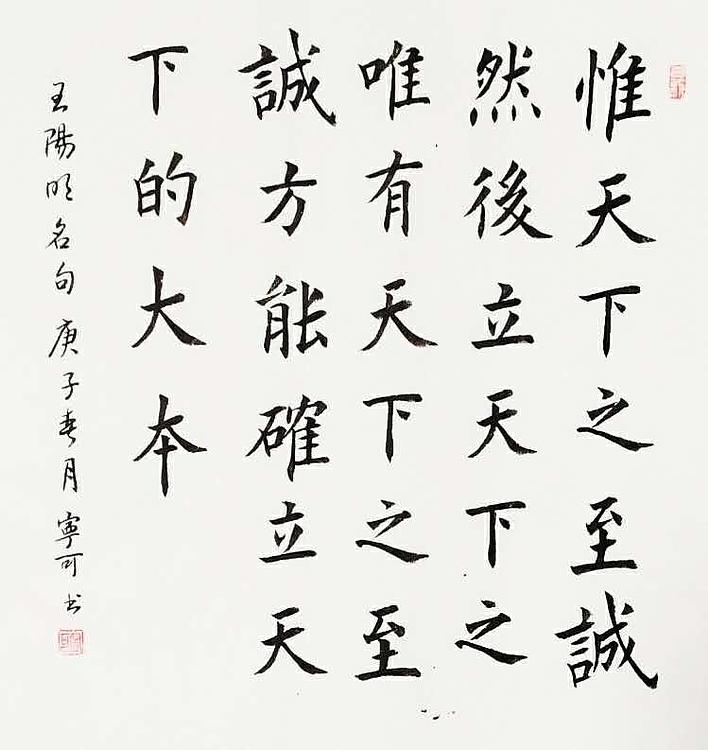 惟天下之至誠
然後立天下之
唯有天下之至
誠方能確立天
下的大本
王陽明名句 庚子春月 寧可书